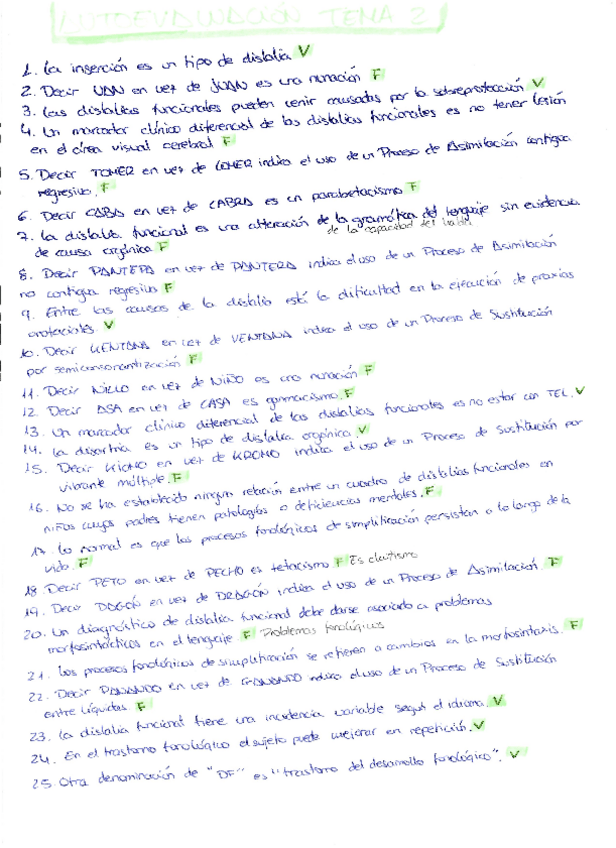 AUTOEVALUACIÓN TEMA 2
1. La inserción es un tipo de dislalia V
2. Decir UAN en vez de JUAN es una nunación F
3. Las dislalias funcionales pueden venir causadas por la sobreprotección V
4. Un marcador clínico diferencial de las dislalias funcionales es no tener lesión
en el área visual cerebral F
5. Decir TOMER en vez de COMER indica el uso de un Proceso de Asimilación contigua
regresiva. F
6. Decir CABA en vez de CABRA es un parabetacismo F
7. La dislalia funcional es una alteración de la gramática del lenguaje sin evidencia
de la capacidad del habla
de causa orgánica F
8. Decir PANTEPA en vez de PANTERA indica el uso de un Proceso de Asimilación
no contigua regresiva F
9. Entre las causas de la dislalia está la dificultad en la ejecución de praxias
orofaciales V
10. Decir KENTANA en vez de VENTANA indica el uso de un Proceso de Sustitución
por semiconsonantización F
11. Decir NILLO en vez de NIÑO es una nunación F
12. Decir ASA en vez de CASA es gammacismo. F
13. Un marcador clínico diferencial de las dislalias funcionales es no estar con TEL. V
14. La disartria es un tipo de dislalia orgánica. V
15. Decir en vez de KROMO indica el uso de un Proceso de Sustitución por
vibrante múltiple. F
16. No se ha establecido ninguna relación entre un cuadro de dislalias funcionales en
niños cuyos padres tienen patologías o deficiencias mentales. F
17. Lo normal es que los procesos fonológicos de simplificación persistan a lo largo de la
vida. F
18. Decir PETO en vez de PECHO es tetacismo F Es
19. Decir DAGÓN en vez de DRAGÓN indica el uso de un Proceso de Asimilación. F
20. Un diagnóstico de dislalia funcional debe darse asociado a problemas
morfosintácticos en el lenguaje F Problemas fonológicos
21. Los procesos fonológicos de simplificación se refieren a cambios en la morfosintaxis. F
22. Decir en vez de indica el uso de un Proceso de Sustitución
entre Líquidas. F
23. La dislalia funcional tiene una incidencia variable según el idioma. V
24. En el trastorno fonológico el sujeto puede mejorar en repetición. V
25. Otra denominación de "DF" es "trastorno del desarrollo fonológico". V